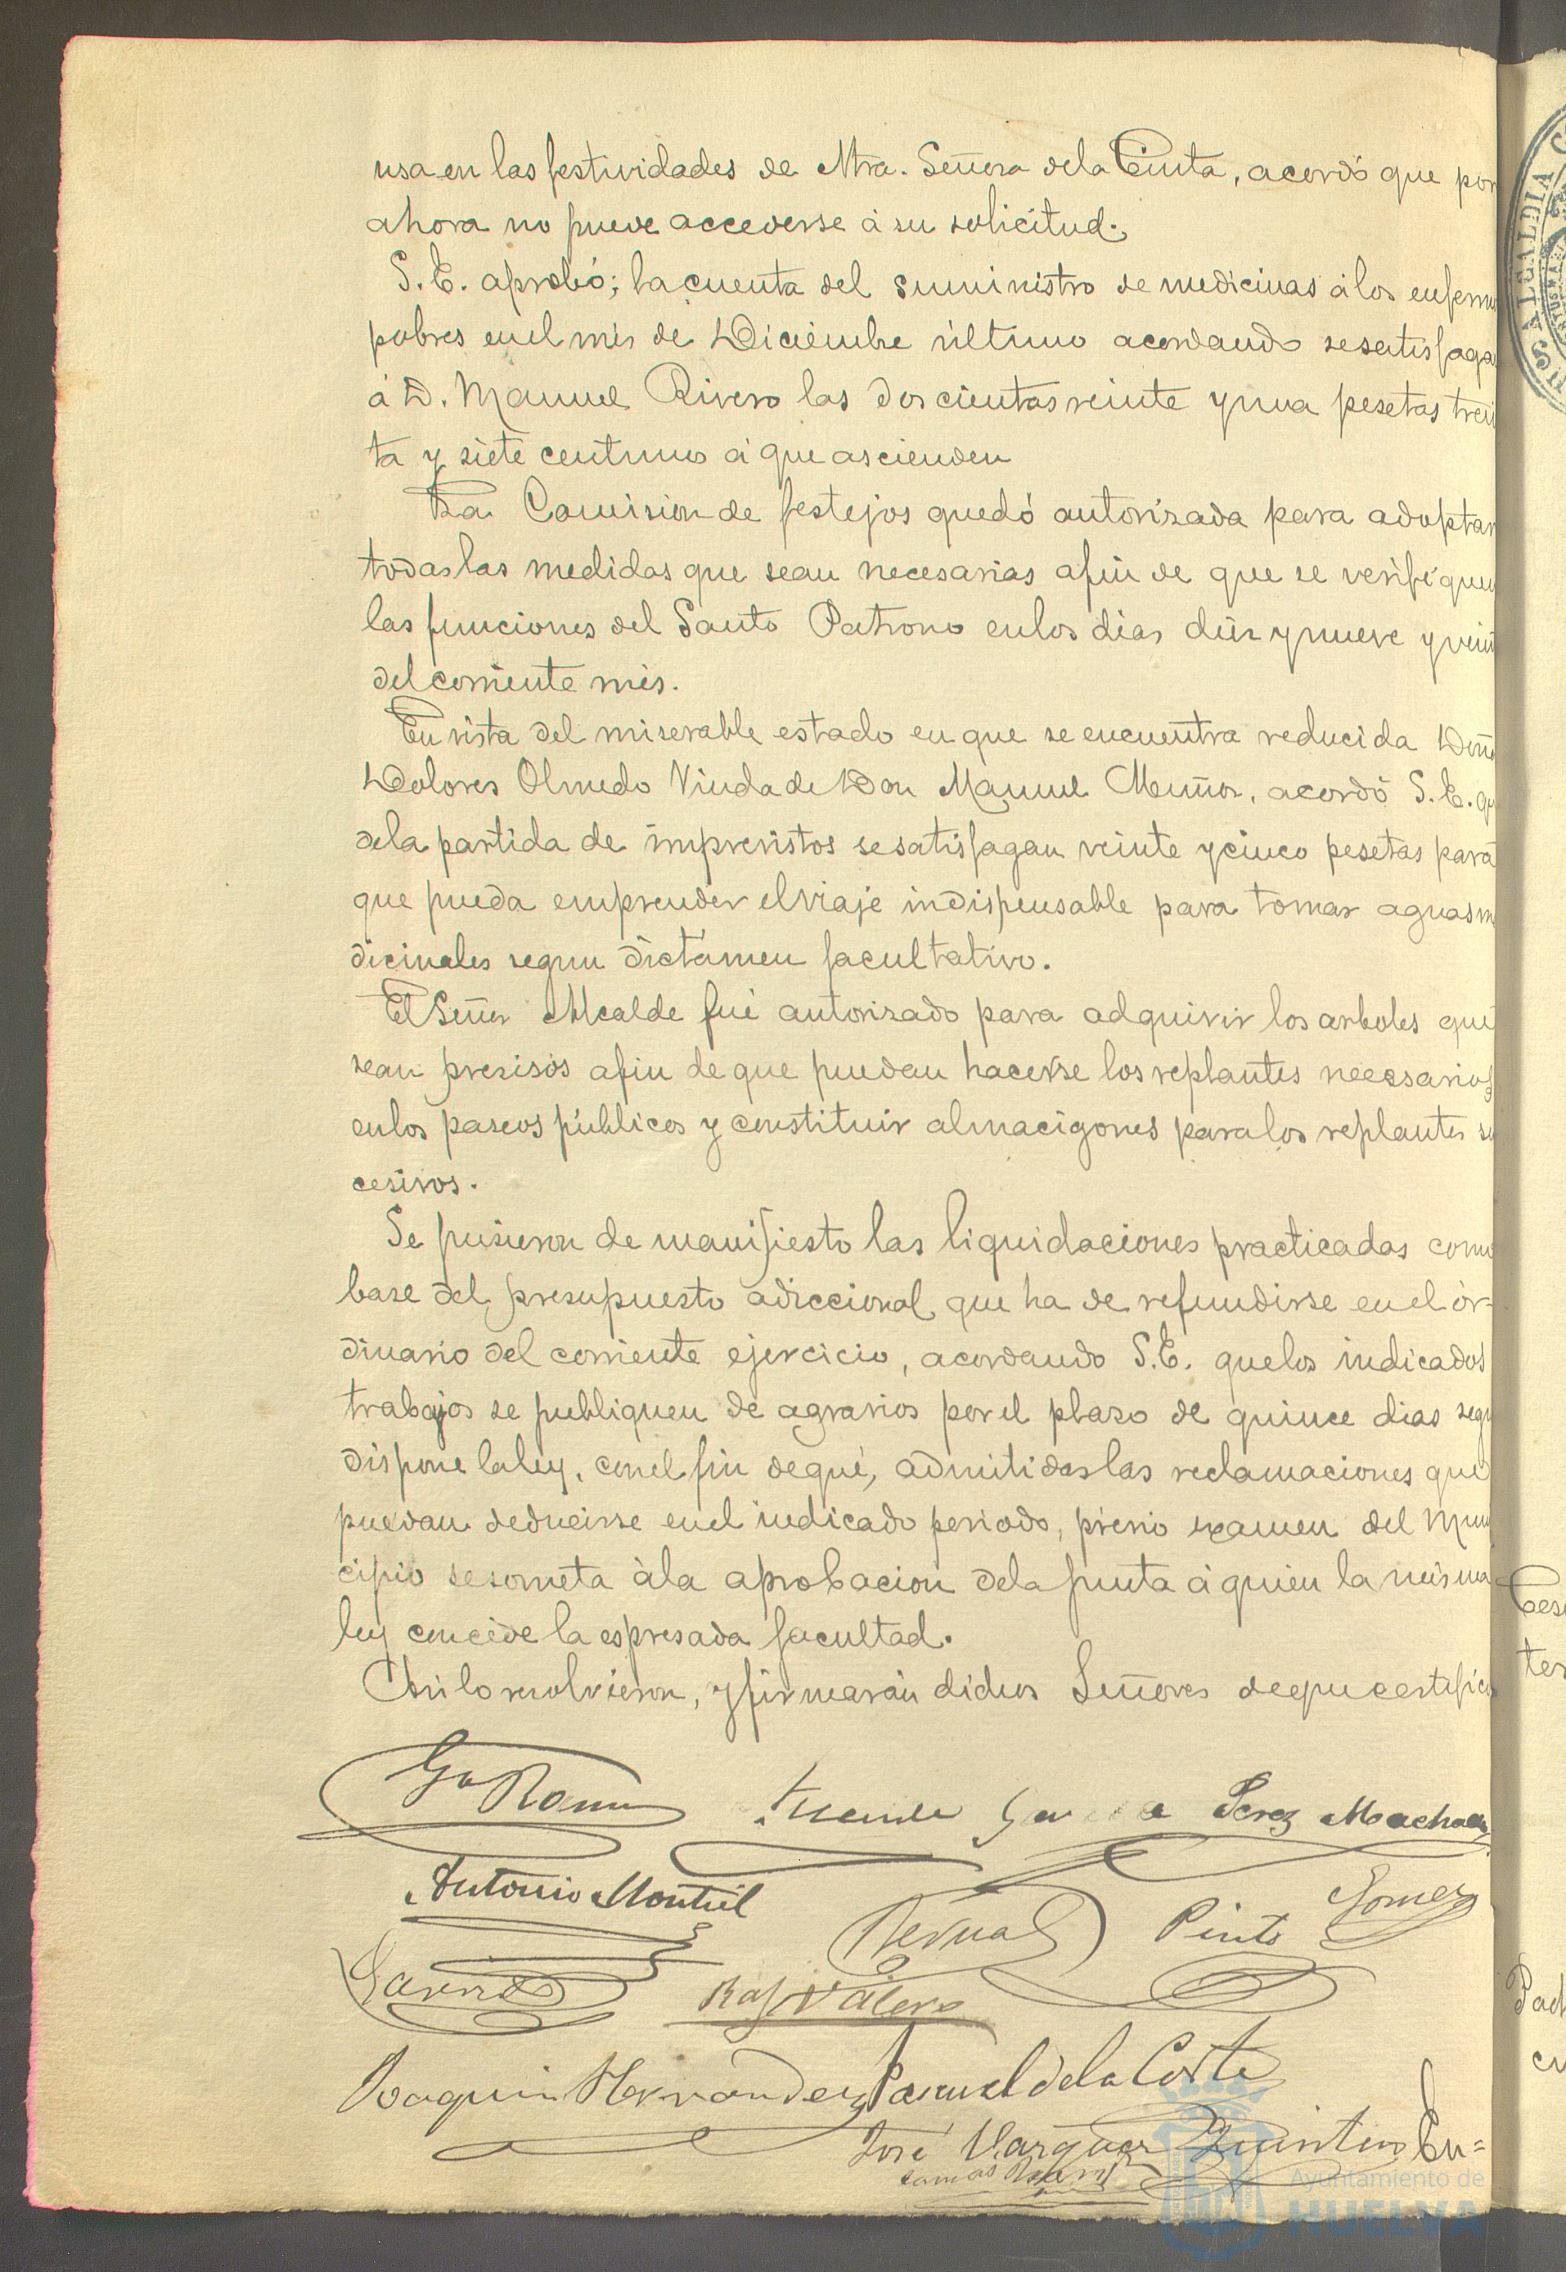 usa en las festividades de Ntra. Señora de la Cinta, acordó que por
ahora no puede accederse á su solicitud.
S. E. aprobó; la cuenta del suministro de medicinas á los enfermo
pobres en el mes de Diciembre último acordando se satisfaga
á D. Manuel Rivero las doscientas veinte y una pesetas trein
ta y siete centimos á que ascienden
La Comision de festejos quedó autorizada para adoptar
todas las medidas que sean necesarias afin de que se verifiquen
las funciones del Santo Patrono en los dias diez y nueve y vein
del corriente mes.
En vista del miserable estado en que se encuentra reducida Doña
Dolores Olmedo Viuda de Don Manuel Muñoz, acordó S. E. qu
de la partida de imprevistos se satisfagan veinte y cinco pesetas para
que pueda emprender el viaje indispensable para tomar aguas m
dicinales segun dictámen facultativo.
El Señor Alcalde fué autorizado para adquirir los arboles que
sean presisos afin de que puedan hacerse los replantes necesarios
en los paseos públicos y constituir almacigones para los replantes su
cesivos.
Se pusieron de manifiesto las liquidaciones practicadas como
base del presupuesto adiccional que ha de refundirse en el or-
dinario del corriente ejercicio, acordando S. E. que los indicados
trabajos se publiquen de agravios por el plazo de quince dias segu
dispone la ley, con el fin de qué, admitidas las reclamaciones que
puedan deducirse en el indicado periodo, previo examen del Muni
cipio se someta á la aprobacion de la junta á quien la misma
ley concede la espresada facultad.
Asi lo resolvieron, y firmarán dichos Señores de que certifico
Ga Roman Garcia Perez Machado
Antonio Montiel Bernal Pinto Gomez
Garrido Raf Valero
Joaquin Hernandez Pascual de la Corte
José Vazquez Quintin En=
ALCALDIA
Ayuntamiento de
HUELVA